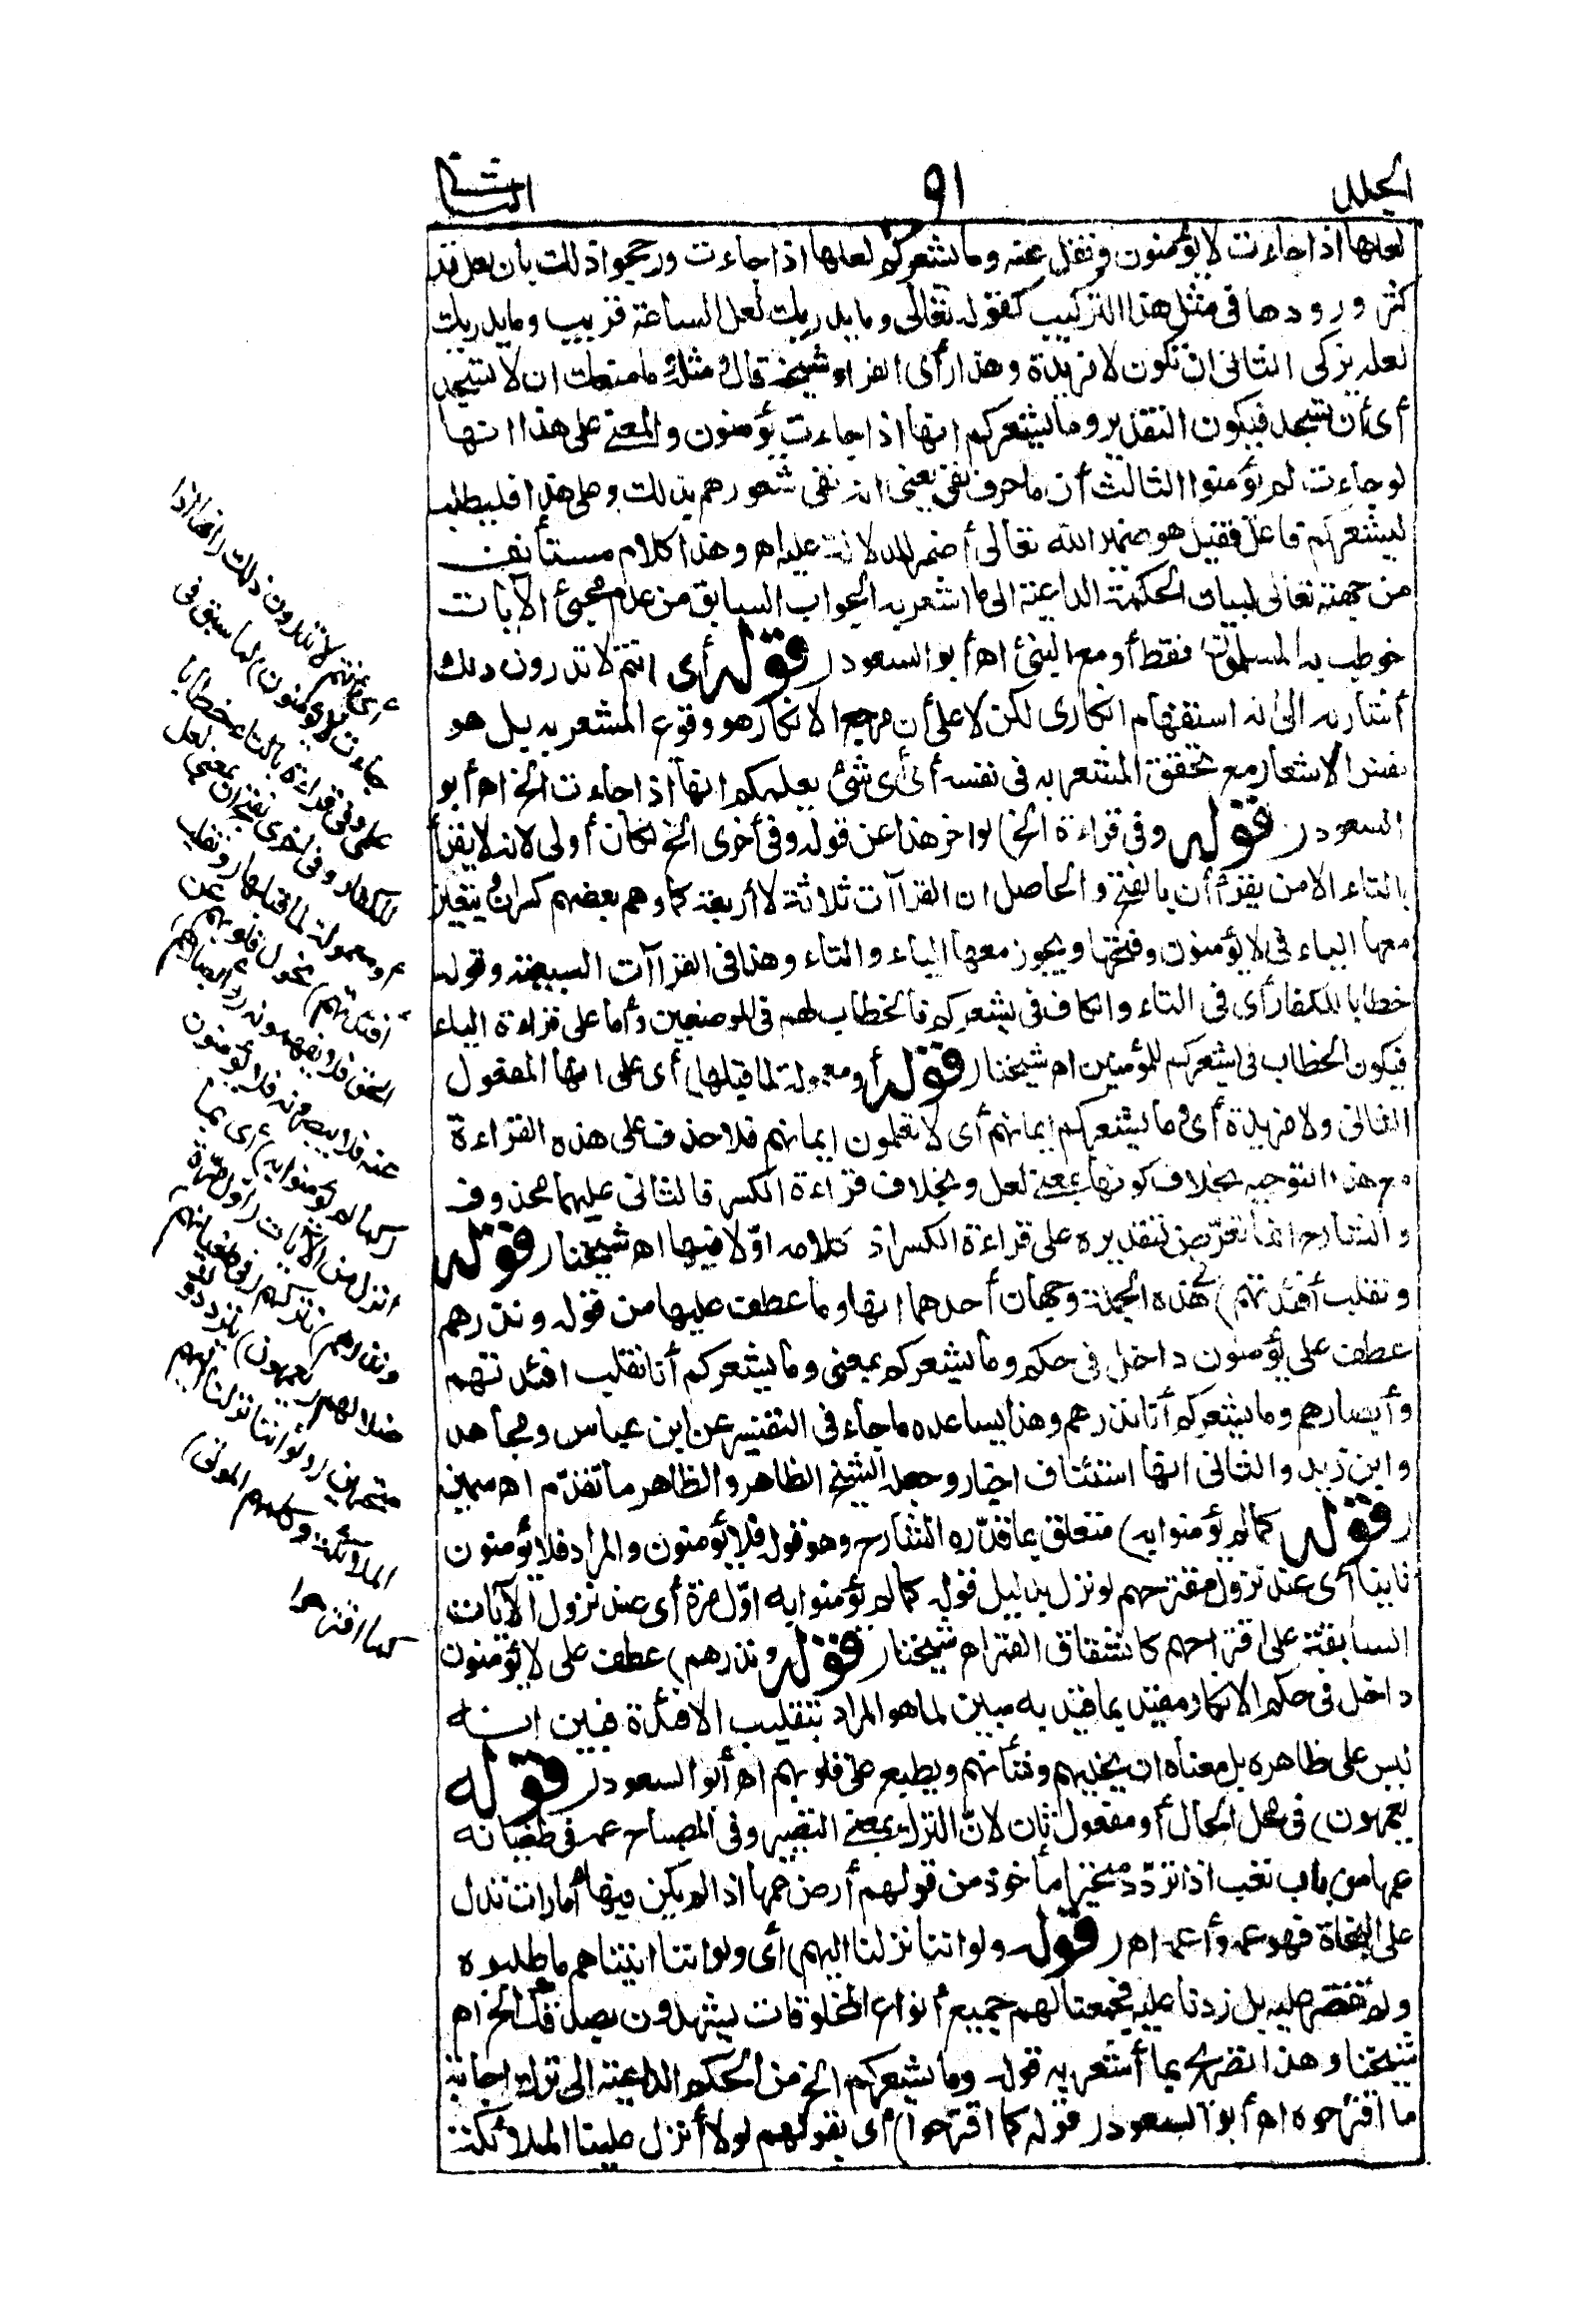 الجلد
٩١
الثانى
لعلها اذا جاءت لا يؤمنون ونقل عنه وما يشعركم لعلها اذا جاءت ورجحوا ذلك بأن لعل قد
كثر ورودها فى مثل هذا التركيب كقوله تعالى وما يدريك لعل الساعة قريب وما يدريك
لعله يزكى الثانى ان تكون لا مزيدة وهذا رأى الفراء وشيخه قال ومثله ما منعك ان لا تسجد
أى أن تسجد فيكون التقدير وما يشعركم انها اذا جاءت يؤمنون والمعنى على هذا انها
لو جاءت لم يؤمنوا الثالث أن ما حرف نفى يعنى انه نفى شعورهم بذلك وعلى هذا فليطلب
ليشعركم فاعل فقيل هو ضمير الله تعالى أضمر للدلالة عليه اه وهذا كلام مستأنف
من جهته تعالى لبيان الحكمة الداعية الى ما اشعر به الجواب السابق من عدم مجيئ الآيات
خوطب به المسلمون فقط أو مع النبى اه أبو السعود (قوله أى انتم لا تدرون ذلك
أشار به الى انه استفهام انكارى لكن لا على أن مرجع الانكار هو وقوع المشعر به بل هو
نفس الاشعار مع تحقق المشعر به فى نفسه أى أى شئ يعلمكم انها اذا جاءت الخ اه أبو
السعود (قوله وفى قراءة الخ) لو اخر هذا عن قوله وفى أخرى الخ لكان أولى لانه لا يقرأ
بالتاء الا من يقرأ أن بالفتح والحاصل ان القراآت ثلاثة لا أربعة كما وهم بعضهم كسران ويتعين
معها الياء فى لا يؤمنون وفتحها ويجوز معها الياء والتاء وهذا فى القراآت السبعة وقوله
خطابا للكفار أى فى التاء والكاف فى يشعركم فالخطاب لهم فى الموضعين وأما على قراءة الياء
فيكون الخطاب فى يشعركم للمؤمنين اه شيخنا (قوله أو معمولة لما قبلها) أى على انها المفعول
الثانى ولا مزيدة أى وما يشعركم ايمانهم أى لا تعلمون ايمانهم فلا حذف على هذه القراءة
مع هذا التوجيه بخلاف كونها بمعنى لعل وبخلاف قراءة الكسر فالثانى عليهما محذوف
والشارح انما تعرض لتقديره على قراءة الكسر اذ كلامه اوّلا فيها اه شيخنا (قوله
ونقلب أفئدتهم) هذه الجملة وجهان أحدهما انها وما عطف عليها من قوله ونذرهم
عطف على يؤمنون داخل فى حكم وما يشعركم بمعنى وما يشعركم أنا نقلب افئدتهم
وأبصارهم وما يشعركم أنا نذرهم وهذا يساعده ما جاء فى التفسير عن ابن عباس ومجاهد
وابن زيد والثانى انها استئناف اخبار وجعله الشيخ الظاهر والظاهر ما تقدّم اه سمين
(قوله كما لم يؤمنوا به) متعلق بما قدّره الشارح وهو قوله فلا يؤمنون والمراد فلا يؤمنون
ثانيا أى عند نزول مقترحهم لو نزل بدليل قوله كما لم يؤمنوا به اوّل مرة أى عند نزول الآيات
السابقة على اقتراحهم كانشقاق القمر اه شيخنا (قوله ونذرهم) عطف على لا يؤمنون
داخل فى حكم الانكار مقيد بما قيد به مبين لما هو المراد بتقليب الافئدة فبين انه
ليس على ظاهره بل معناه ان يخليهم وشأنهم ويطبع على قلوبهم اه أبو السعود (قوله
يعمهون) فى محل الحال أو مفعول ثان لانّ الترك بمعنى التصيير وفى المصباح عمه فى طغيانه
عمها من باب تعب اذا تردّد متحيرا مأخوذ من قولهم أرض عمها اذا لم يكن فيها أمارات تدل
على النجاة فهو عمه وأعمه اه (قوله ولو اننا نزلنا اليهم) أى ولو اننا اتيناهم ما طلبوه
ولم نقتصر عليه بل زدنا عليه فجمعنا لهم جميع أنواع المخلوقات يشهدون بصدقك الخ اه
شيخنا وهذا تصريح بما أشعر به قوله وما يشعركم الخ من الحكم الداعية الى ترك اجابة
ما اقترحوه اه أبو السعود (قوله كما اقترحوا) أى بقولهم لولا أنزل علينا الملائكة
أى أنتم لا تدرون ذلك (انها اذا
جاءت لا يؤمنون) لما سبق فى
علمى وفى قراءة بالتاء خطابا
للكفار وفى أخرى بفتح ان بمعنى لعل
أو معمولة لما قبلها (ونقلب
أفئدتهم) نحول قلوبهم عن
الحق فلا يفهمونه (وأبصارهم)
عنه فلا يبصرونه فلا يؤمنون
(كما لم يؤمنوا به) أى بما
انزل من الآيات (اوّل مرّة
ونذرهم) نتركهم (فى طغيانهم)
ضلالهم (يعمهون) يترددون
متحيرين (ولو اننا نزلنا اليهم
الملائكة وكلمهم الموتى)
كما اقترحوا